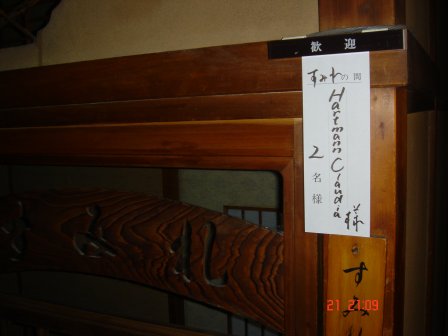 歓迎
すみれの間
Hartmann Claudia 様
2名様
すみれ
すみれ
21 21:09